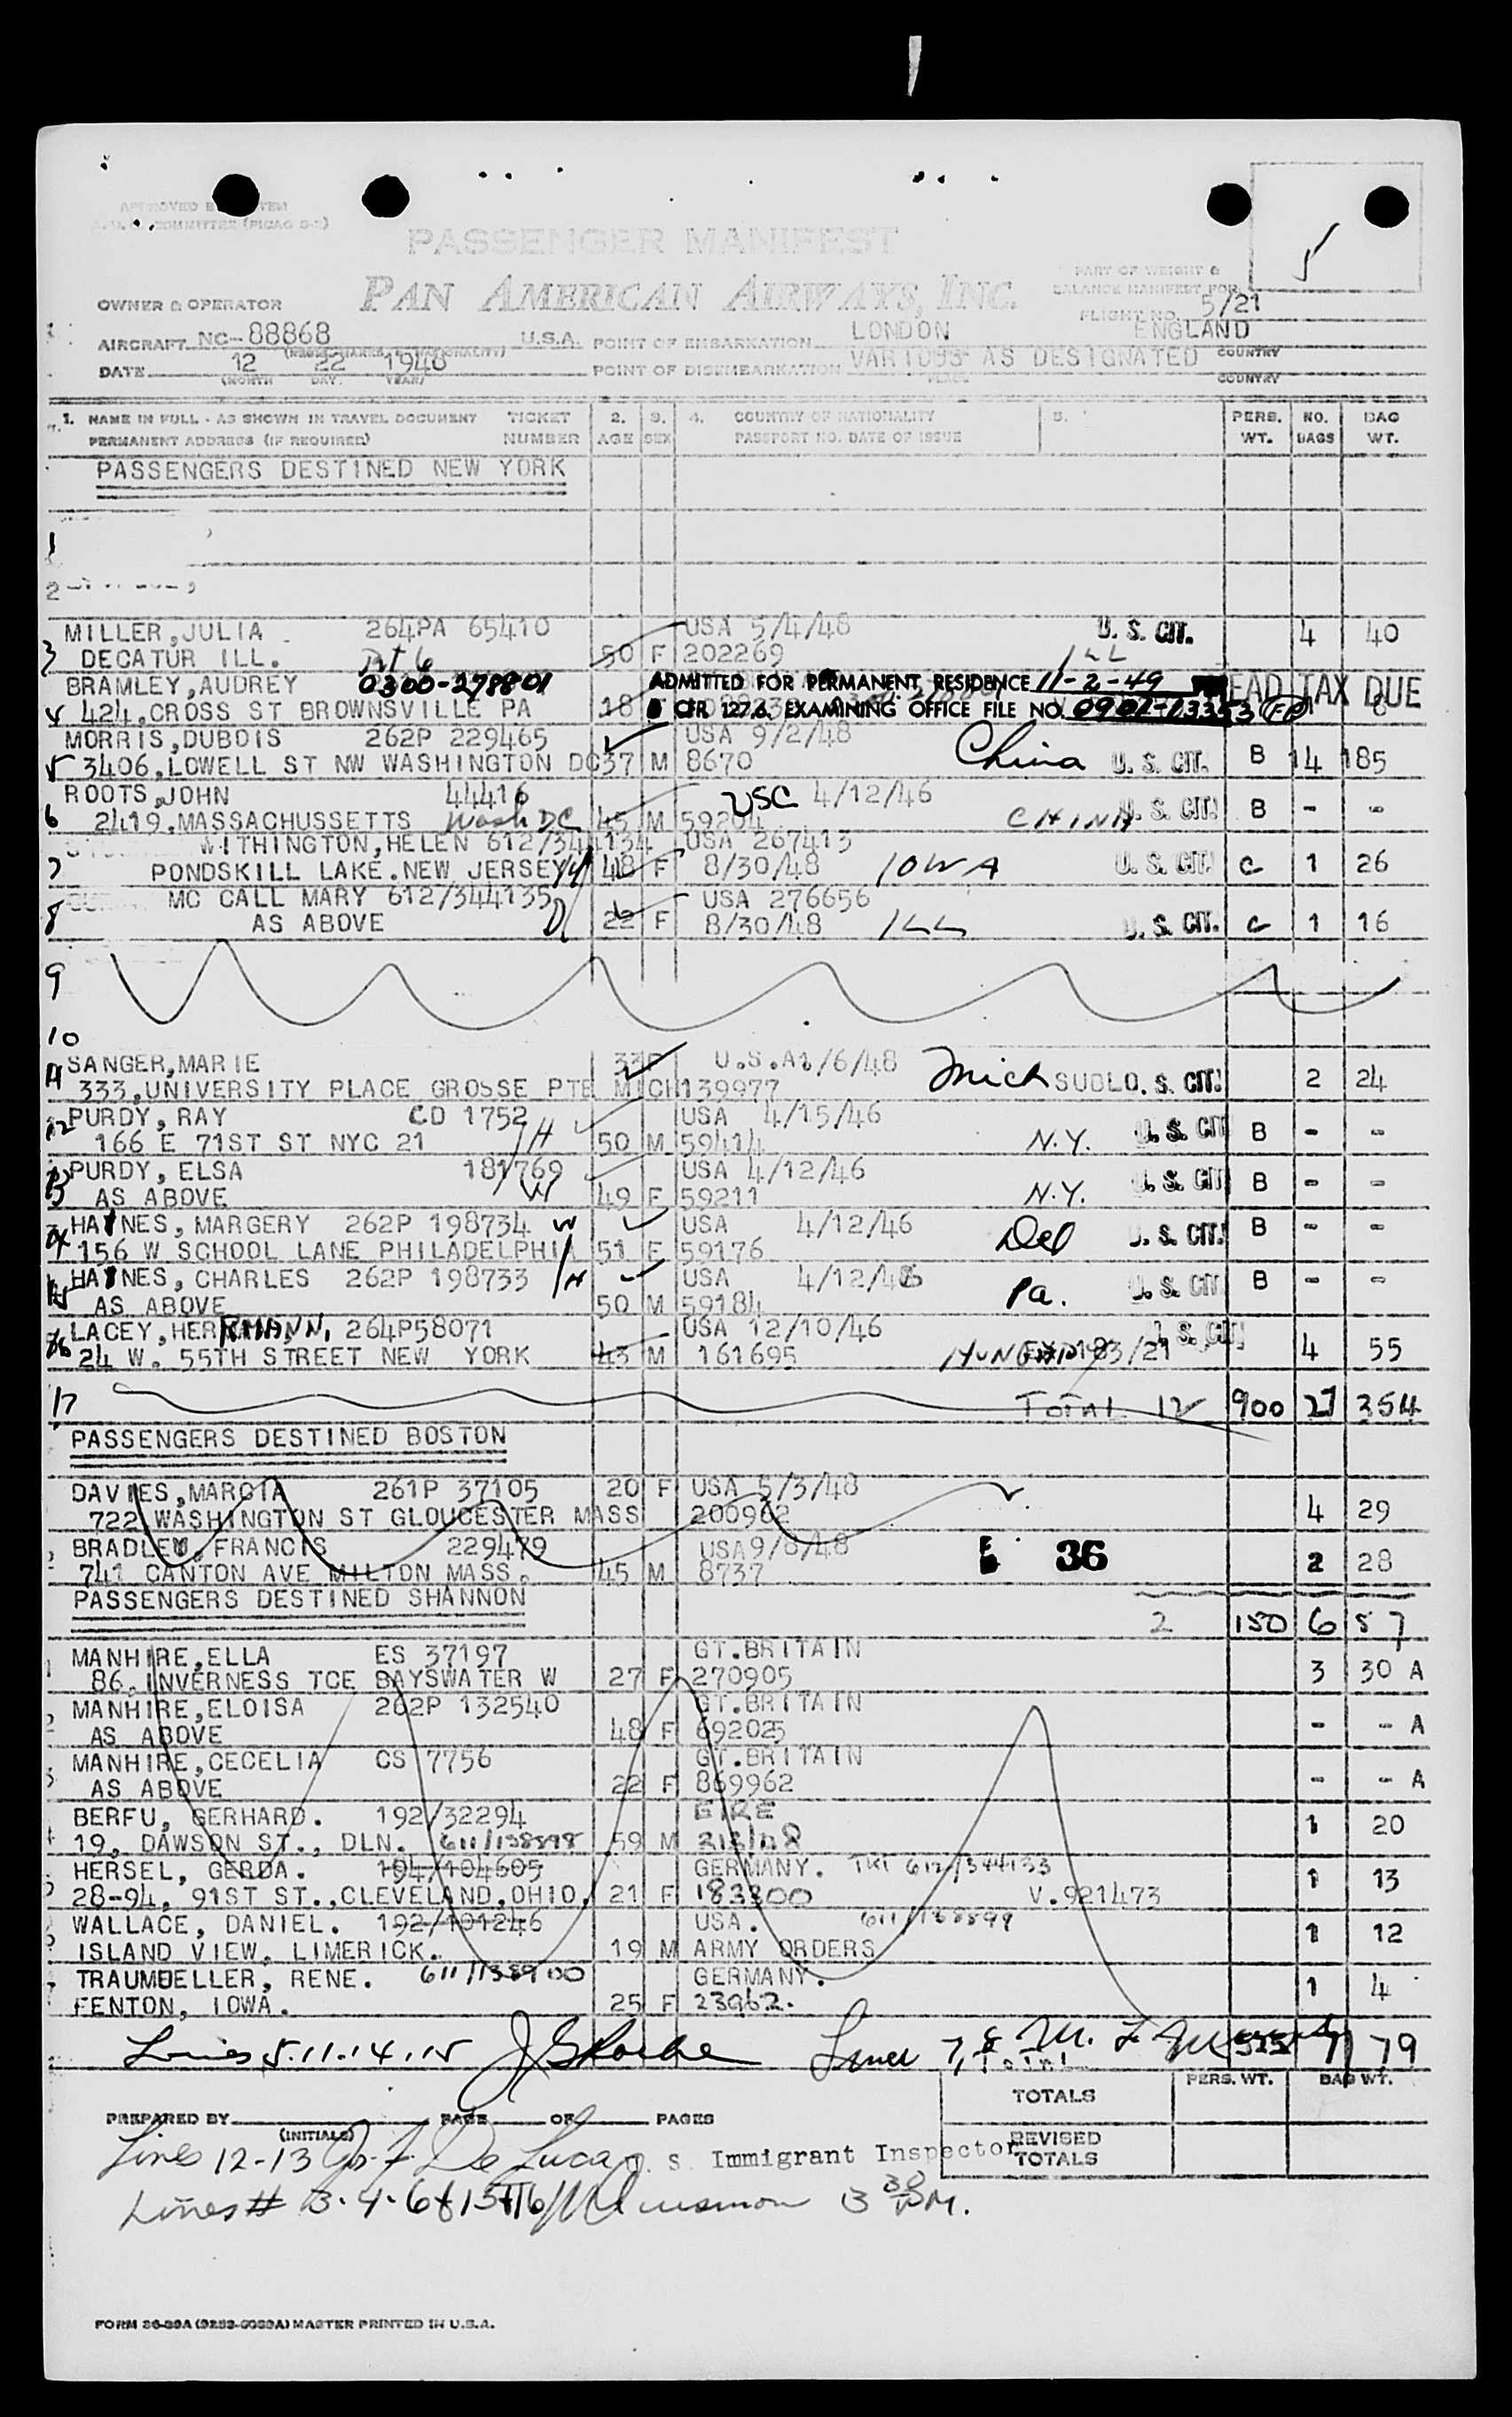 PASSENGER MANIFEST
PAN AMERICAN AIRWAYS, INC.
PART OF WEIGHT &
BALANCE MANIFEST FOR
OWNER & OPERATOR
FLIGHT NO. 5/21
AIRCRAFT NC-88868 U.S.A. POINT OF EMBARKATION LONDON ENGLAND
DATE 12 22 1948 POINT OF DISEMBARKATION VARIOUS AS DESIGNATED COUNTRY
(MONTH DAY YEAR) PLACE COUNTRY
1. NAME IN FULL - AS SHOWN IN TRAVEL DOCUMENT TICKET 2. 3. 4. COUNTRY OF NATIONALITY 5. PERS. NO. BAG
PERMANENT ADDRESS (IF REQUIRED) NUMBER AGE SEX PASSPORT NO. DATE OF ISSUE WT. BAGS WT.
PASSENGERS DESTINED NEW YORK
1
2
MILLER,JULIA 264PA 65410 USA 5/4/48 U. S. CIT. 4 40
3 DECATUR ILL. 50 F 202269 ILL
BRAMLEY,AUDREY 0300-278801 ADMITTED FOR PERMANENT RESIDENCE 11-2-49 HEAD TAX DUE
4 424,CROSS ST BROWNSVILLE PA 18 8 CFR 127.6. EXAMINING OFFICE FILE NO. 0902-13353 8
MORRIS,DUBOIS 262P 229465 USA 9/2/48
5 3406,LOWELL ST NW WASHINGTON DC 37 M 8670 China U. S. CIT. B 14 185
ROOTS,JOHN 44416 USC 4/12/46
6 2419,MASSACHUSSETTS Wash DC 45 M 59204 CHINA U. S. CIT. B - -
WITHINGTON,HELEN 612/344134 USA 267413
7 PONDSKILL LAKE.NEW JERSEY 48 F 8/30/48 IOWA U. S. CIT. C 1 26
MC CALL MARY 612/344135 USA 276656
8 AS ABOVE 22 F 8/30/48 ILL U. S. CIT. C 1 16
9
10
SANGER,MARIE 33 F U.S.A 1/6/48
11 333,UNIVERSITY PLACE GROSSE PTE MICH 139977 Mich U. S. CIT. 2 24
12 PURDY, RAY CD 1752 USA 4/15/46
166 E 71ST ST NYC 21 H 50 M 59414 N.Y. U. S. CIT B - -
13 PURDY, ELSA 181769 USA 4/12/46
AS ABOVE W 49 F 59211 N.Y. U. S. CIT B - -
14 HAYNES, MARGERY 262P 198734 W USA 4/12/46
156 W SCHOOL LANE PHILADELPHIA 51 F 59176 Del U. S. CIT. B - -
15 HAYNES, CHARLES 262P 198733 H USA 4/12/46
AS ABOVE 50 M 59184 Pa. U. S. CIT B - -
16 LACEY,HERRMANN, 264P58071 USA 12/10/46
24 W. 55TH STREET NEW YORK 43 M 161695 4 55
17 TOTAL 12 900 27 354
PASSENGERS DESTINED BOSTON
DAVIES,MARCIA 261P 37105 20 F USA 5/3/48
722 WASHINGTON ST GLOUCESTER MASS 200962 4 29
BRADLEY,FRANCIS 229479 USA9/8/48 36
741 CANTON AVE MILTON MASS. 45 M 8737 2 28
PASSENGERS DESTINED SHANNON
2 150 6 57
MANHIRE,ELLA ES 37197 GT.BRITAIN
86,INVERNESS TCE BAYSWATER W 27 F 270905 3 30 A
MANHIRE,ELOISA 262P 132540 GT.BRITAIN
AS ABOVE 48 F 692025 - - A
MANHIRE,CECELIA CS 7756 GT.BRITAIN
AS ABOVE 22 F 869962 - - A
BERFU, GERHARD. 192/32294 EIRE
19, DAWSON ST., DLN. 611/138898 59 M 1 20
HERSEL, GERDA. 194/104605 GERMANY. TKT 612/344133
28-94, 91ST ST.,CLEVELAND,OHIO. 21 F 183300 V.921473 1 13
WALLACE, DANIEL. 192/101246 USA. 611/138899
ISLAND VIEW, LIMERICK. 19 M ARMY ORDERS 1 12
TRAUMUELLER, RENE. 611/138900 GERMANY.
FENTON, IOWA. 25 F 23962. 1 4
Lines 5.11.14.15 79
TOTALS PERS. WT. BAG WT.
PREPARED BY PAGE OF PAGES
(INITIALS)
Lines 12-13 De Luca U. S. Immigrant Inspector REVISED TOTALS
Lines # 3-4-6
FORM 36-39A MASTER PRINTED IN U.S.A.